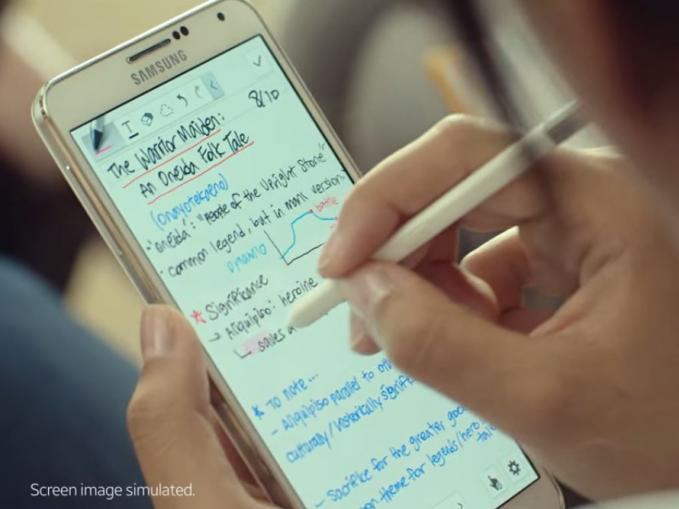 SAMSUNG
8/10
The Warrior Maiden:
An Oneida Folk Tale
(Onayotekaono)
- oneida: "People of the Upright Stone"
- common legend, but in many versions
battle
dynamic
* Significance
→ Aliquipiso: heroine
↳ saves
* To note...
- Aliquipiso parallel to
culturally/historically
- sacrifice for the greater
theme for legends/hero
Screen image simulated.